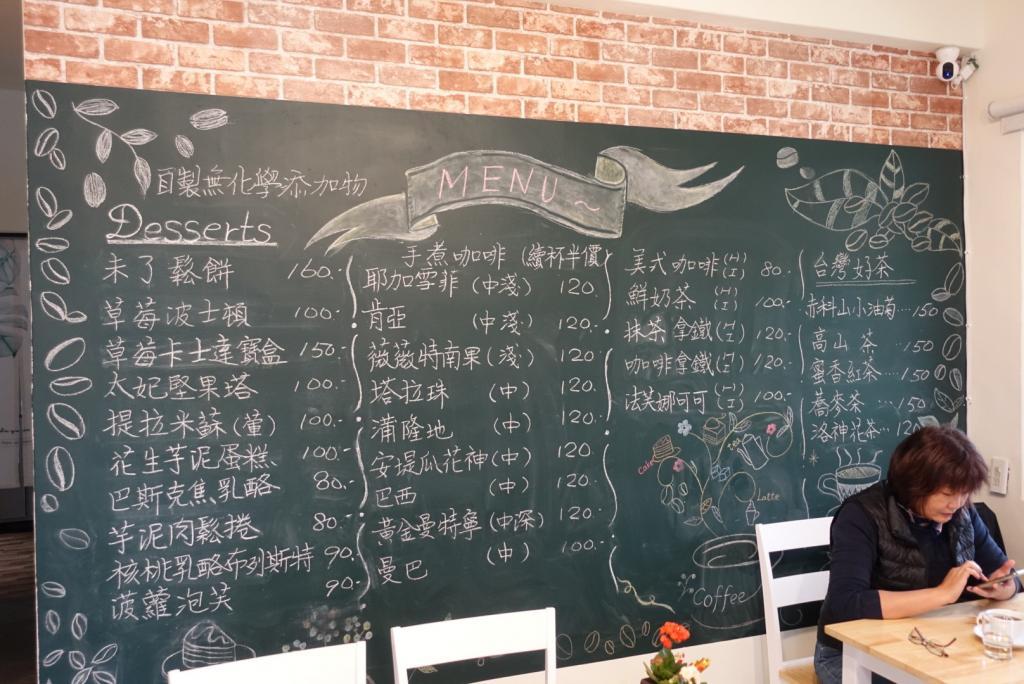 MENU~
自製無化學添加物
Desserts
未了鬆餅 160.-
草莓波士頓 100.-
草莓卡士達寶盒 150.-
太妃堅果塔 100.-
提拉米蘇(葷) 100.-
花生芋泥蛋糕 100.-
巴斯克焦乳酪 80.-
芋泥肉鬆捲 80.-
核桃乳酪布列斯特 90.-
菠蘿泡芙 90.-
手煮咖啡 (續杯半價)
耶加雪菲 (中淺) 120.
肯亞 (中淺) 120.-
薇薇特南果 (淺) 120.
塔拉珠 (中) 120.
蒲隆地 (中) 120.
安堤瓜花神 (中) 120.
巴西 (中) 120.
黃金曼特寧 (中深) 120.
曼巴 (中) 100.-
美式咖啡 (H/I) 80.-
鮮奶茶 (H/I) 100.-
抹茶拿鐵 (H/I) 120.-
咖啡拿鐵 (H/I) 120.-
法芙娜可可 (H/I) 100.-
台灣好茶
赤科山小油菊...150
高山茶 ...150
蜜香紅茶...150
蕎麥茶...150
洛神花茶...120
Cake
Tea
Latte
Coffee